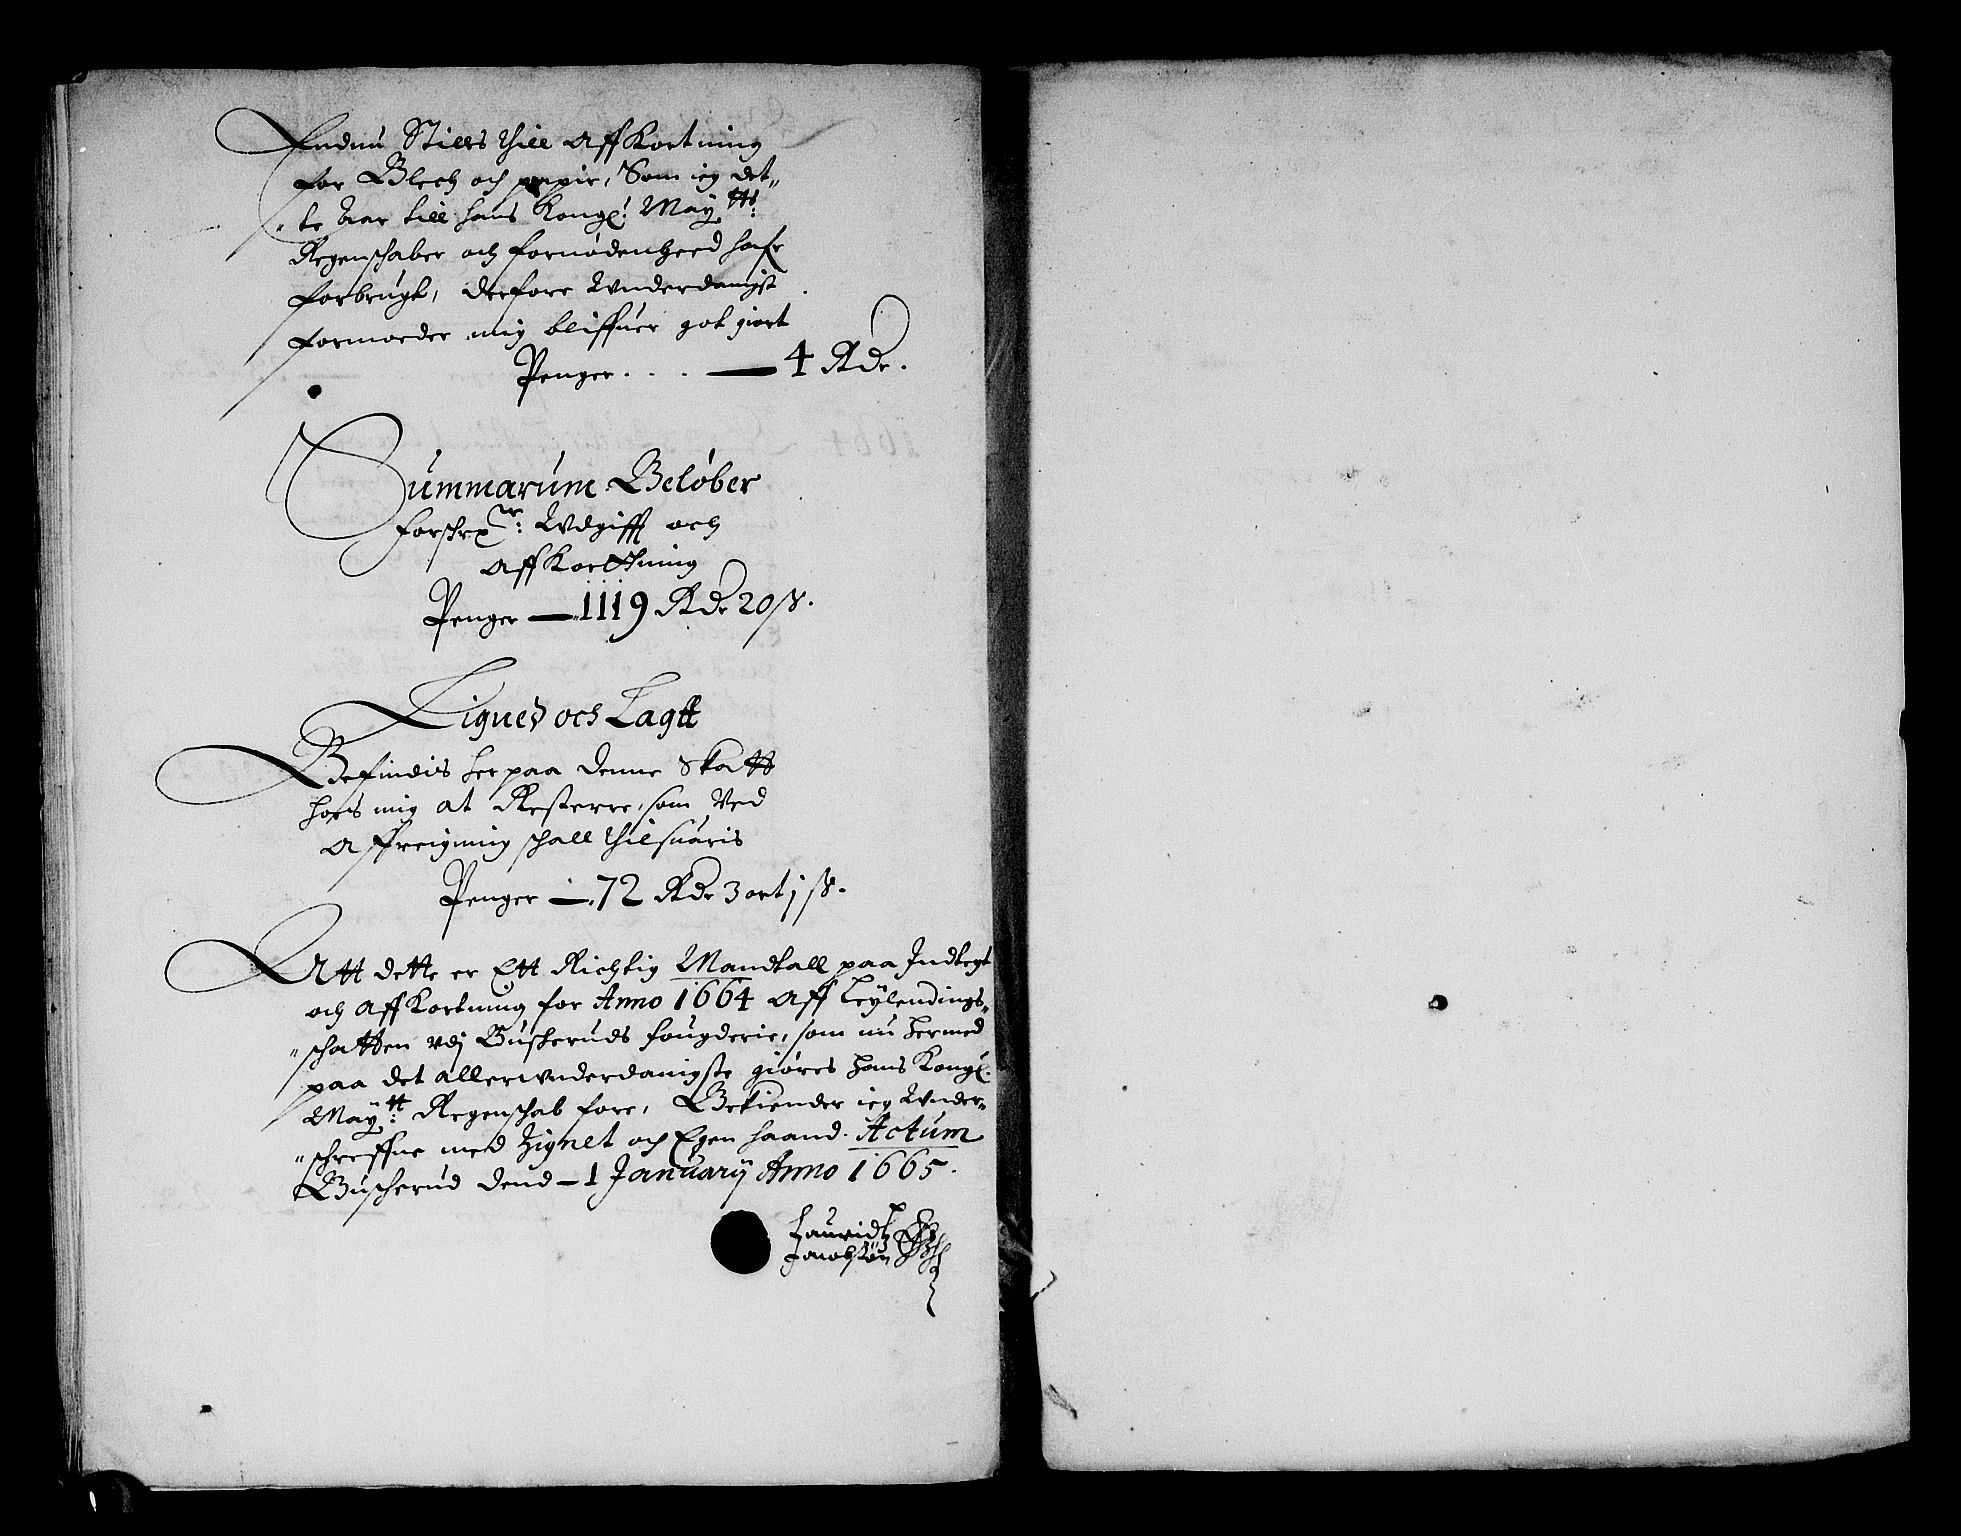 Endnu Stilles thill Affkortning
for Blech och papir, Som ieg det„
„te aar till hans Kongl: May:tts
Regenschaber och fornødenheed hafr
forbrugt, derfore Underdanigst
formoder mig bliffuer got giort
Penger . . . — 4 Rdr.
Summarum Beløber
forschr:ne Udgifft och
Affkorttning
Penger — 1119 Rdr 20 ß.
Lignet och Lagtt
Befindis her paa denne Skatt
hois mig at Restere, som Ved
Affreigning schall thilsuaris
Penger — 72 Rdr 3 ort 1 ß.
Att dette er Ett Richtig Mandtall paa Indtegt
och Affkortning for Anno 1664 Aff Leylendings„
„schatten vdj Buskeruds fougderie, som nu hermed
paa det allerunderdanigste giøres hans Kongl:
May:tt Regenschab fore, Bekiender ieg Under„
„schreffne med Zignet och Egen haand. Actum
Buscherud dend — 1 January Anno 1665.
Lauridtz
Jacobsøn